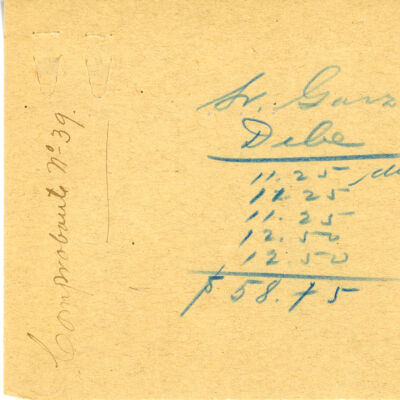 Comprobante Nº 39.
Sr. Garz
Debe
11.25
11.25
11.25
12.50
12.50
$ 58.75